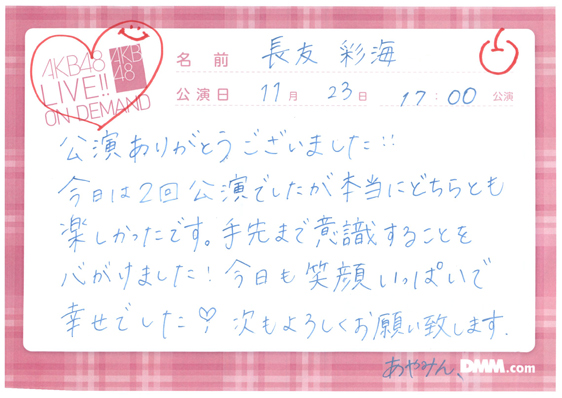 AKB48
LIVE!!
ON DEMAND
AKB
48
名前 長友 彩海
公演日 11月 23日 17:00 公演
公演ありがとうございました!!
今日は2回公演でしたが本当にどちらとも
楽しかったです。手先まで意識することを
心がけました!今日も笑顔いっぱいで
幸せでした♡ 次もよろしくお願い致します.
あやみん、
DMM.com